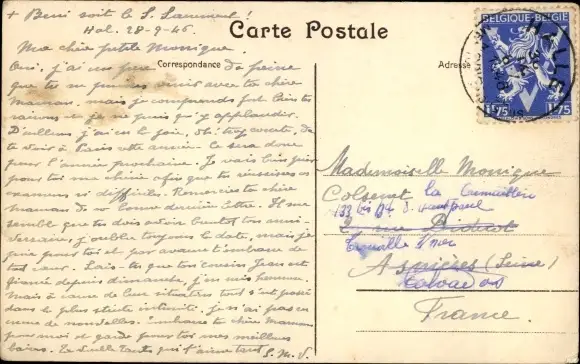 + Beni soit le S. Sacrement !
Carte Postale
Hal. 28-9-46.
Ma chère petite Monique.
Correspondance
Oui, j'ai un peu de peine
que tu ne puisses venir avec ta chère
Maman, mais je comprends fort bien tes
raisons et je ne puis qu'y applaudir.
D'ailleurs j'ai eu la joie, oh! trop courte, de
te voir à Paris cette année. Ce sera donc
pour l'année prochaine. Je vais bien prier
pour toi ma chérie afin que tu réussisses ces
examens si difficiles. Remercie ta chère
maman de sa bonne dernière lettre. Il me
semble que tu dois avoir bientôt ton anni-
versaire, j'oublie toujours la date, mais je
prie pour toi et par avance t'embrasse de
tout cœur. Sais-tu que ton cousin Jean est
fiancé depuis dimanche, j'en suis heureuse.
Mais à cause de leur situation tout s'est passé
dans la plus stricte intimité. Je n'ai pas eu
encore de nouvelles. Embrasse ta chère Maman
pour moi et garde pour toi mes meilleurs
baisers. Ta vieille tante qui t'aime tant
S. M. S.
BELGIQUE-BELGIE
1F75 1F75
Adresse
Mademoiselle Monique
Colsenet
133 bis
rue Diderot
Trouville s/mer
Asnières (Seine)
Calvados
France.